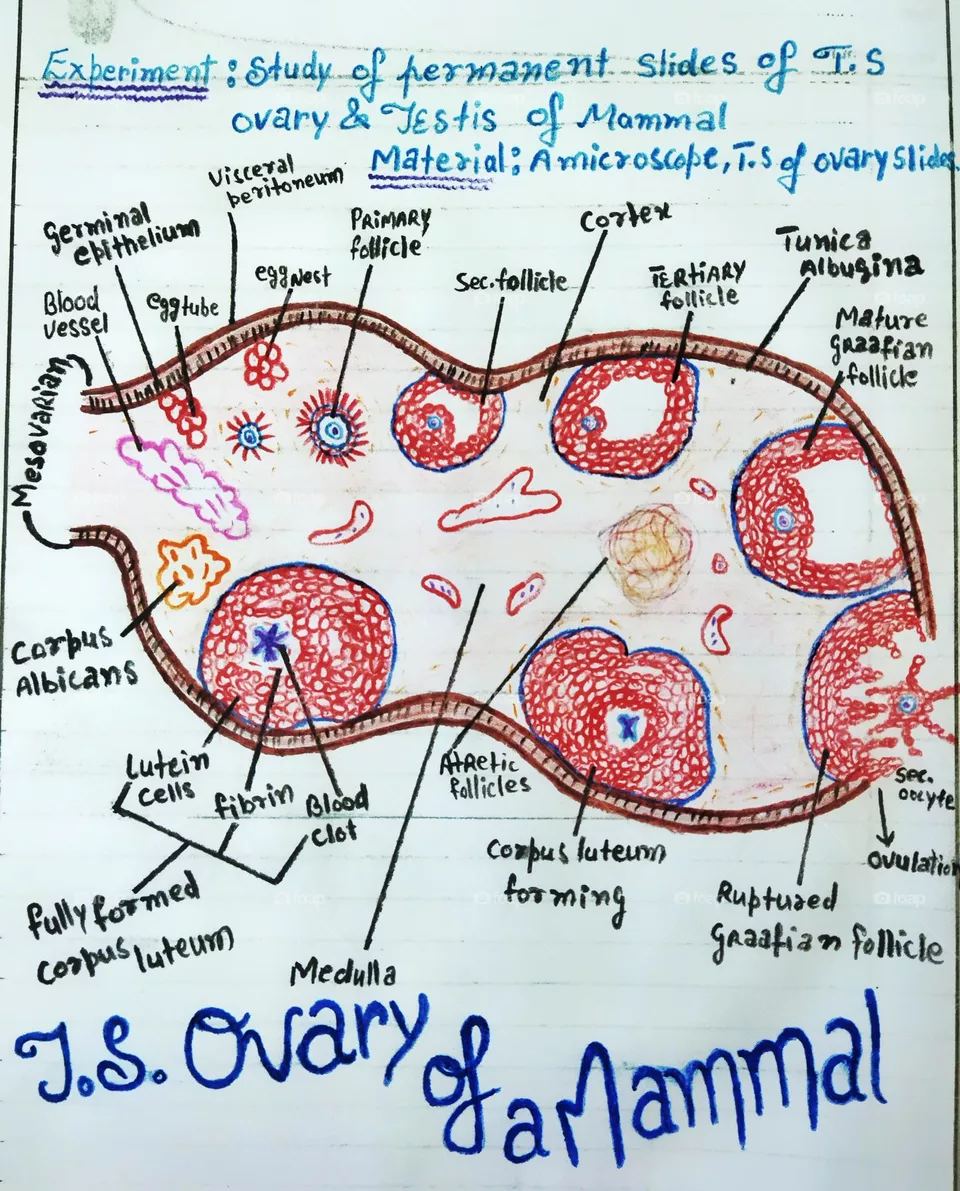 Experiment: Study of permanent slides of T.S
ovary & Testis of Mammal
Material; A microscope, T.S of ovary slides
Visceral
peritoneum
Germinal
epithelium
PRIMARY
follicle
Cortex
Tunica
Albugina
egg Nest
Sec. follicle
TERTIARY
follicle
Blood
vessel
egg tube
Mature
graafian
follicle
Mesovarian
Corpus
Albicans
Lutein
cells
fibrin
Blood
clot
Atretic
follicles
sec.
oocyte
ovulation
Corpus luteum
forming
Ruptured
Graafian follicle
fully formed
corpus luteum
Medulla
T.S. Ovary of a Mammal
foap